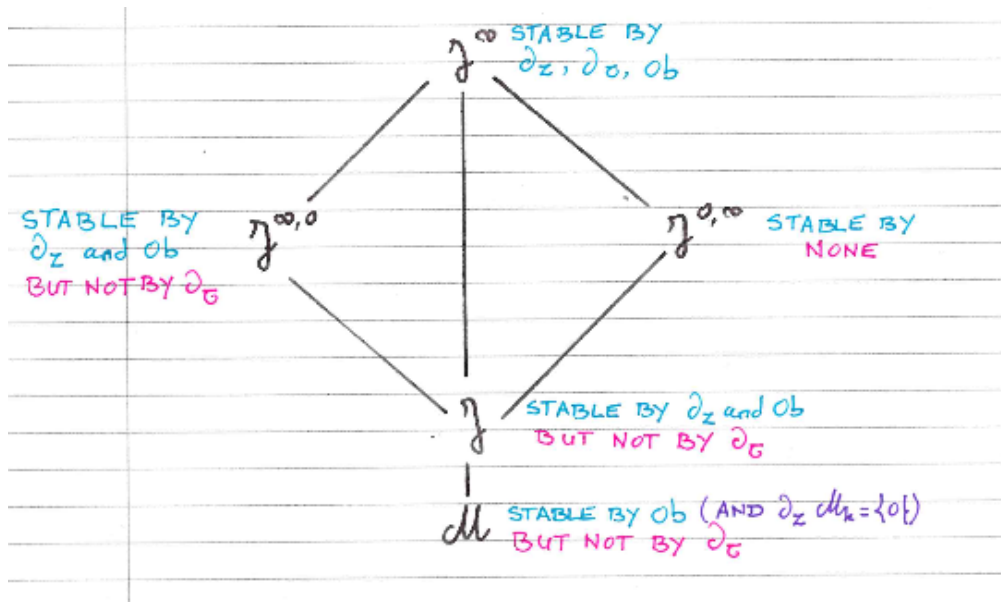 𝒥^∞ STABLE BY
∂_z, ∂_τ, Ob
STABLE BY
∂_z and Ob
BUT NOT BY ∂_τ
𝒥^{∞,0}
𝒥^{0,∞}
STABLE BY
NONE
𝒥
STABLE BY ∂_z and Ob
BUT NOT BY ∂_τ
ℳ STABLE BY Ob (AND ∂_z ℳ_k = {0})
BUT NOT BY ∂_τ